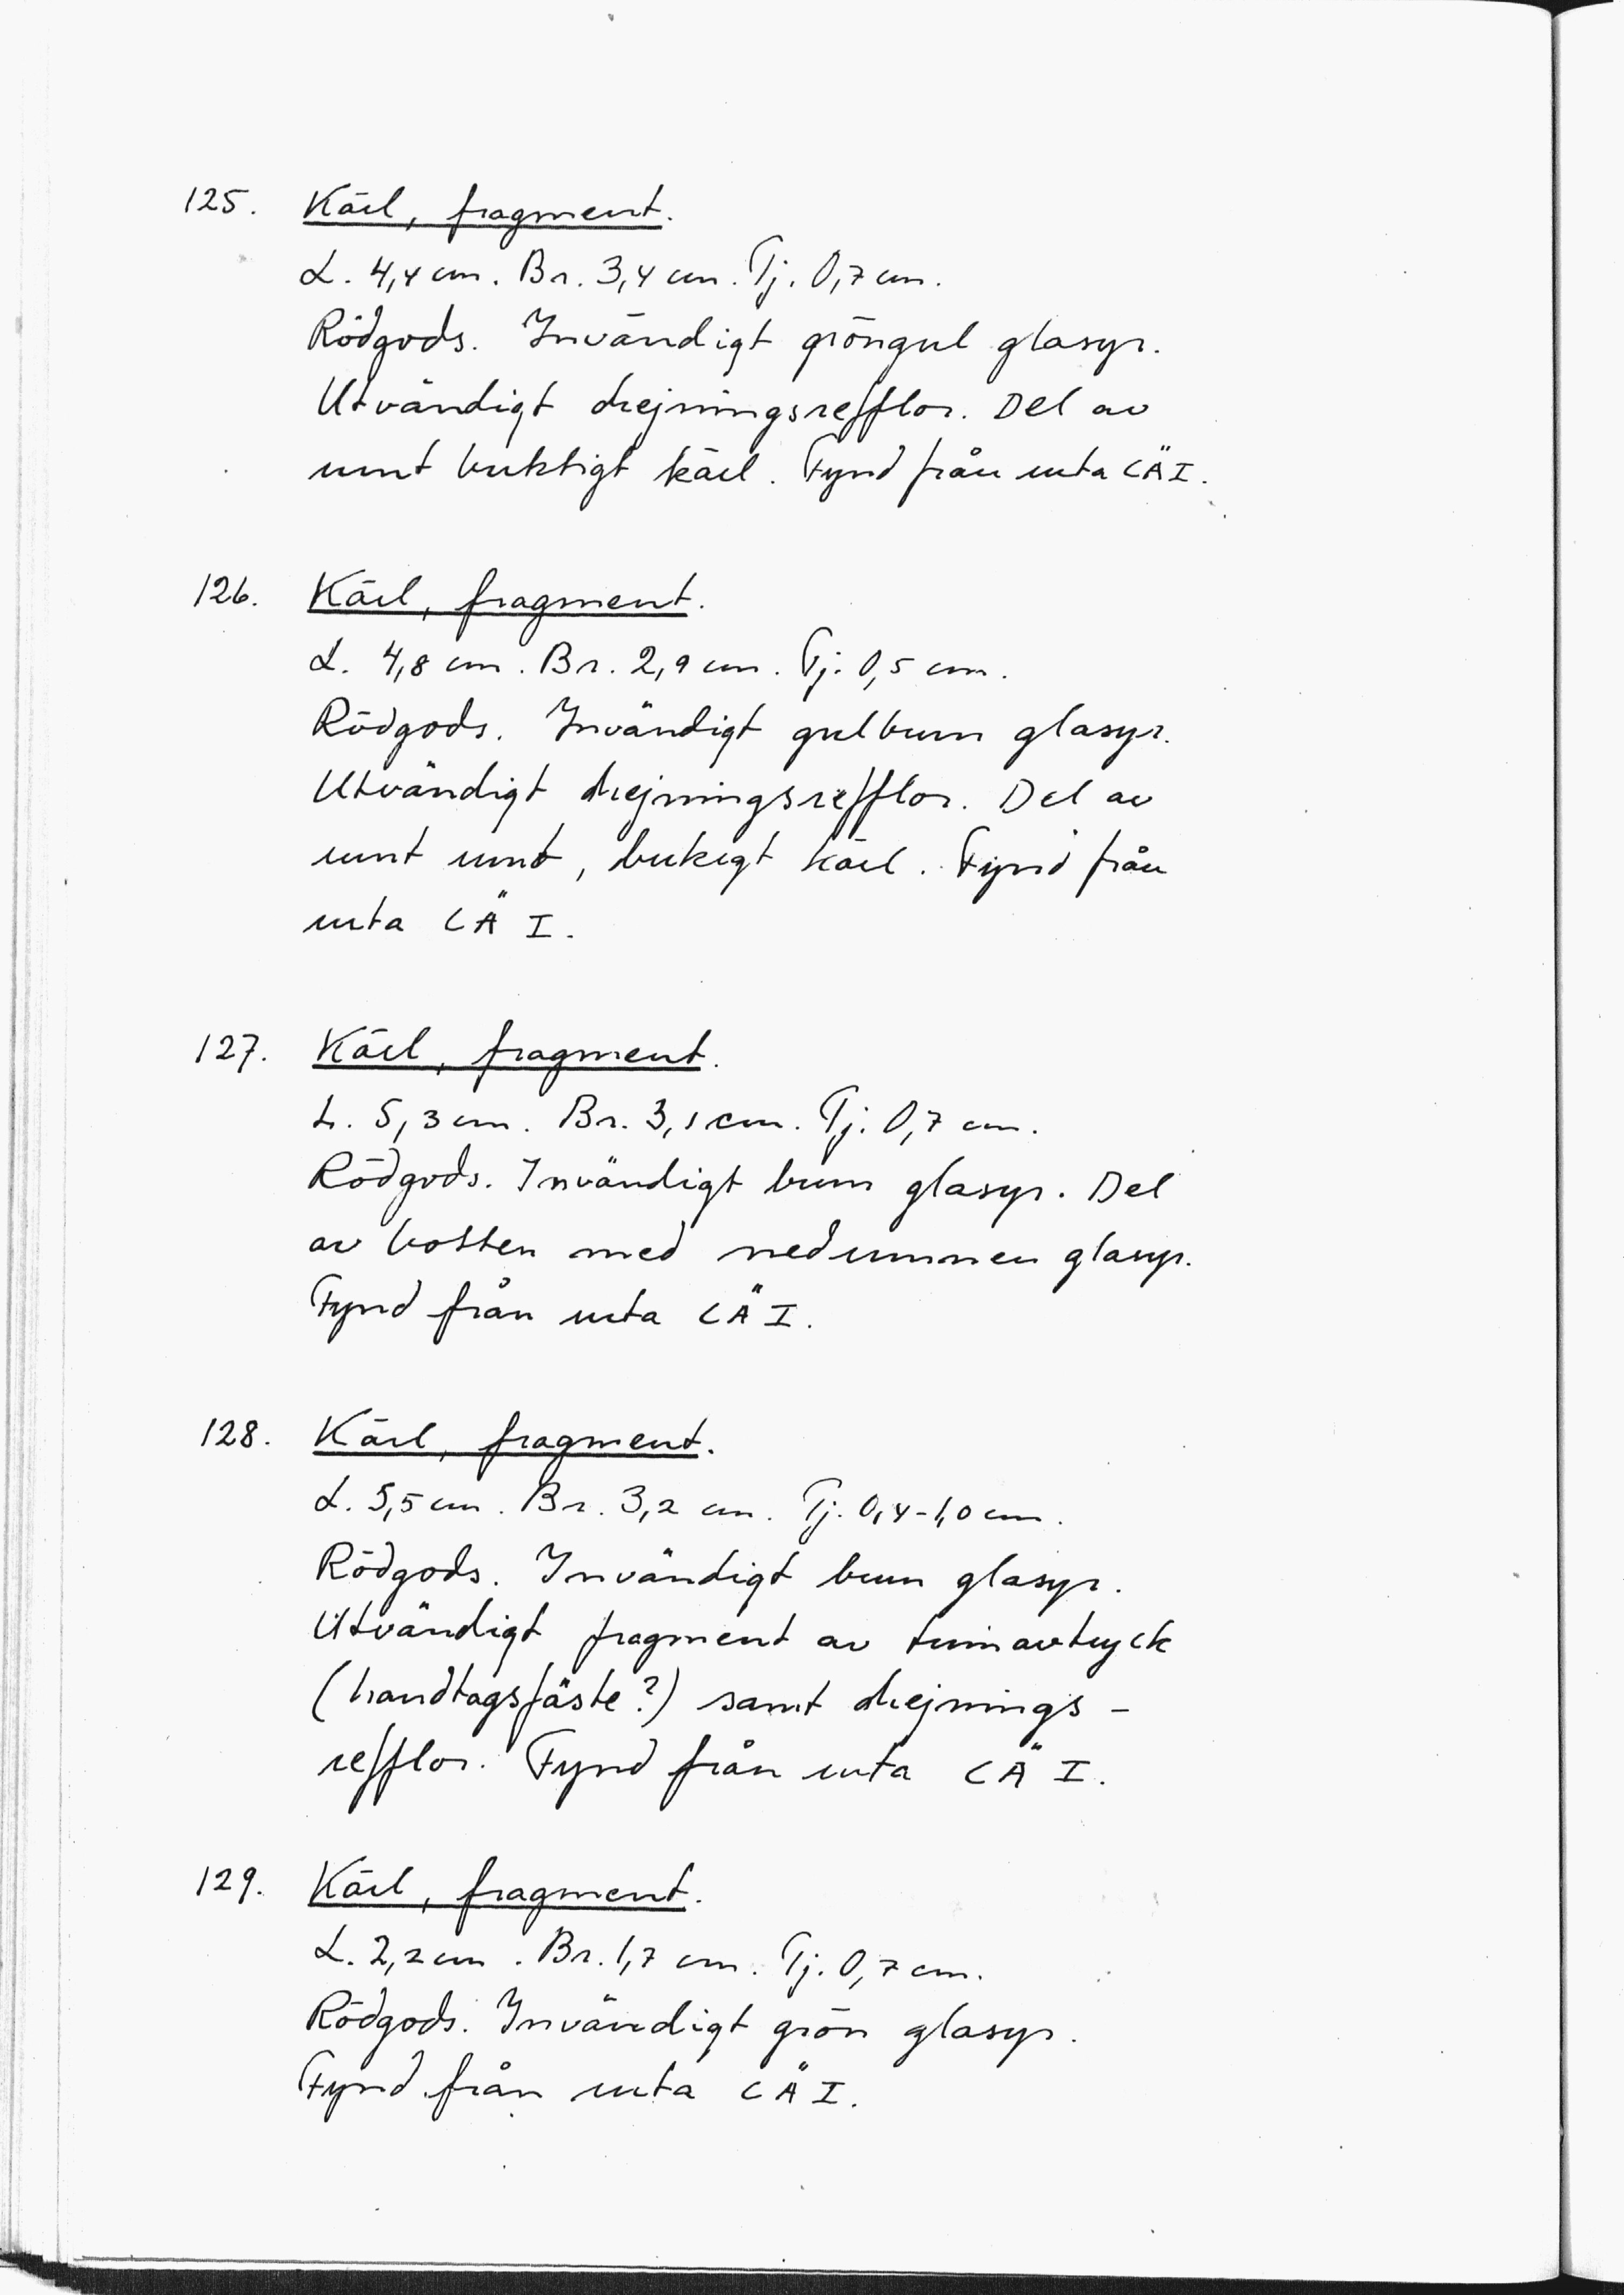 125. Kärl, fragment.
L. 4,4 cm. Br. 3,4 cm. Tj. 0,7 cm.
Rödgods. Invändigt gröngul glasyr.
Utvändigt drejningsrefflor. Del av
runt buktigt kärl. Fynd från ruta CÄI.
126. Kärl, fragment.
L. 4,8 cm. Br. 2,9 cm. Tj. 0,5 cm.
Rödgods. Invändigt gulbrun glasyr.
Utvändigt drejningsrefflor. Del av
runt runt, bukigt kärl. Fynd från
ruta CÄ I.
127. Kärl, fragment.
L. 5,3 cm. Br. 3,1 cm. Tj. 0,7 cm.
Rödgods. Invändigt brun glasyr. Del
av botten med nedrunnen glasyr.
Fynd från ruta CÄ I.
128. Kärl, fragment.
L. 5,5 cm. Br. 3,2 cm. Tj. 0,4-1,0 cm.
Rödgods. Invändigt brun glasyr.
Utvändigt fragment av tumavtryck
(handtagsfäste?) samt drejnings-
refflor. Fynd från ruta CÄ I.
129. Kärl, fragment.
L. 2,2 cm. Br. 1,7 cm. Tj. 0,7 cm.
Rödgods. Invändigt grön glasyr.
Fynd från ruta CÄ I.